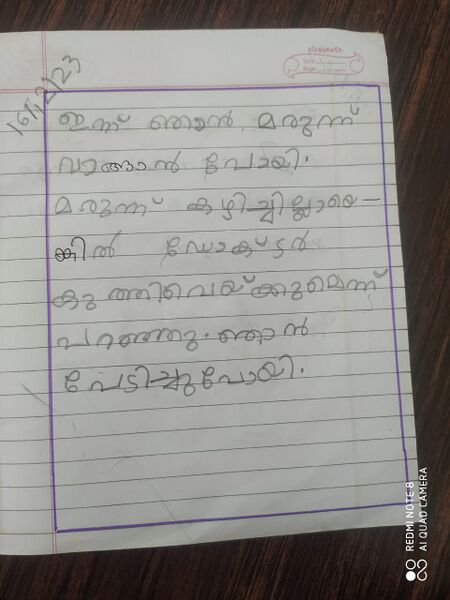 classmate
Date
Page
16/12/23
ഇന്ന് ഞാൻ മരുന്ന്
വാങ്ങാൻ പോയി.
മരുന്ന് കഴിച്ചില്ലായെ-
ങ്കിൽ ഡോക്ടർ
കുത്തിവെയ്ക്കുമെന്ന്
പറഞ്ഞു. ഞാൻ
പേടിച്ചുപോയി.
REDMI NOTE 8
AI QUAD CAMERA